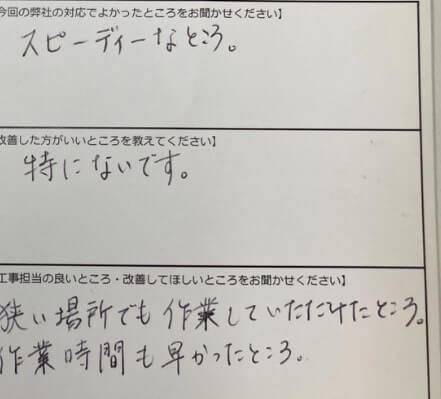 今回の弊社の対応でよかったところをお聞かせください】
スピーディーなところ。
改善した方がいいところを教えてください】
特にないです。
工事担当の良いところ・改善してほしいところをお聞かせください】
狭い場所でも作業していただけたところ。
作業時間も早かったところ。